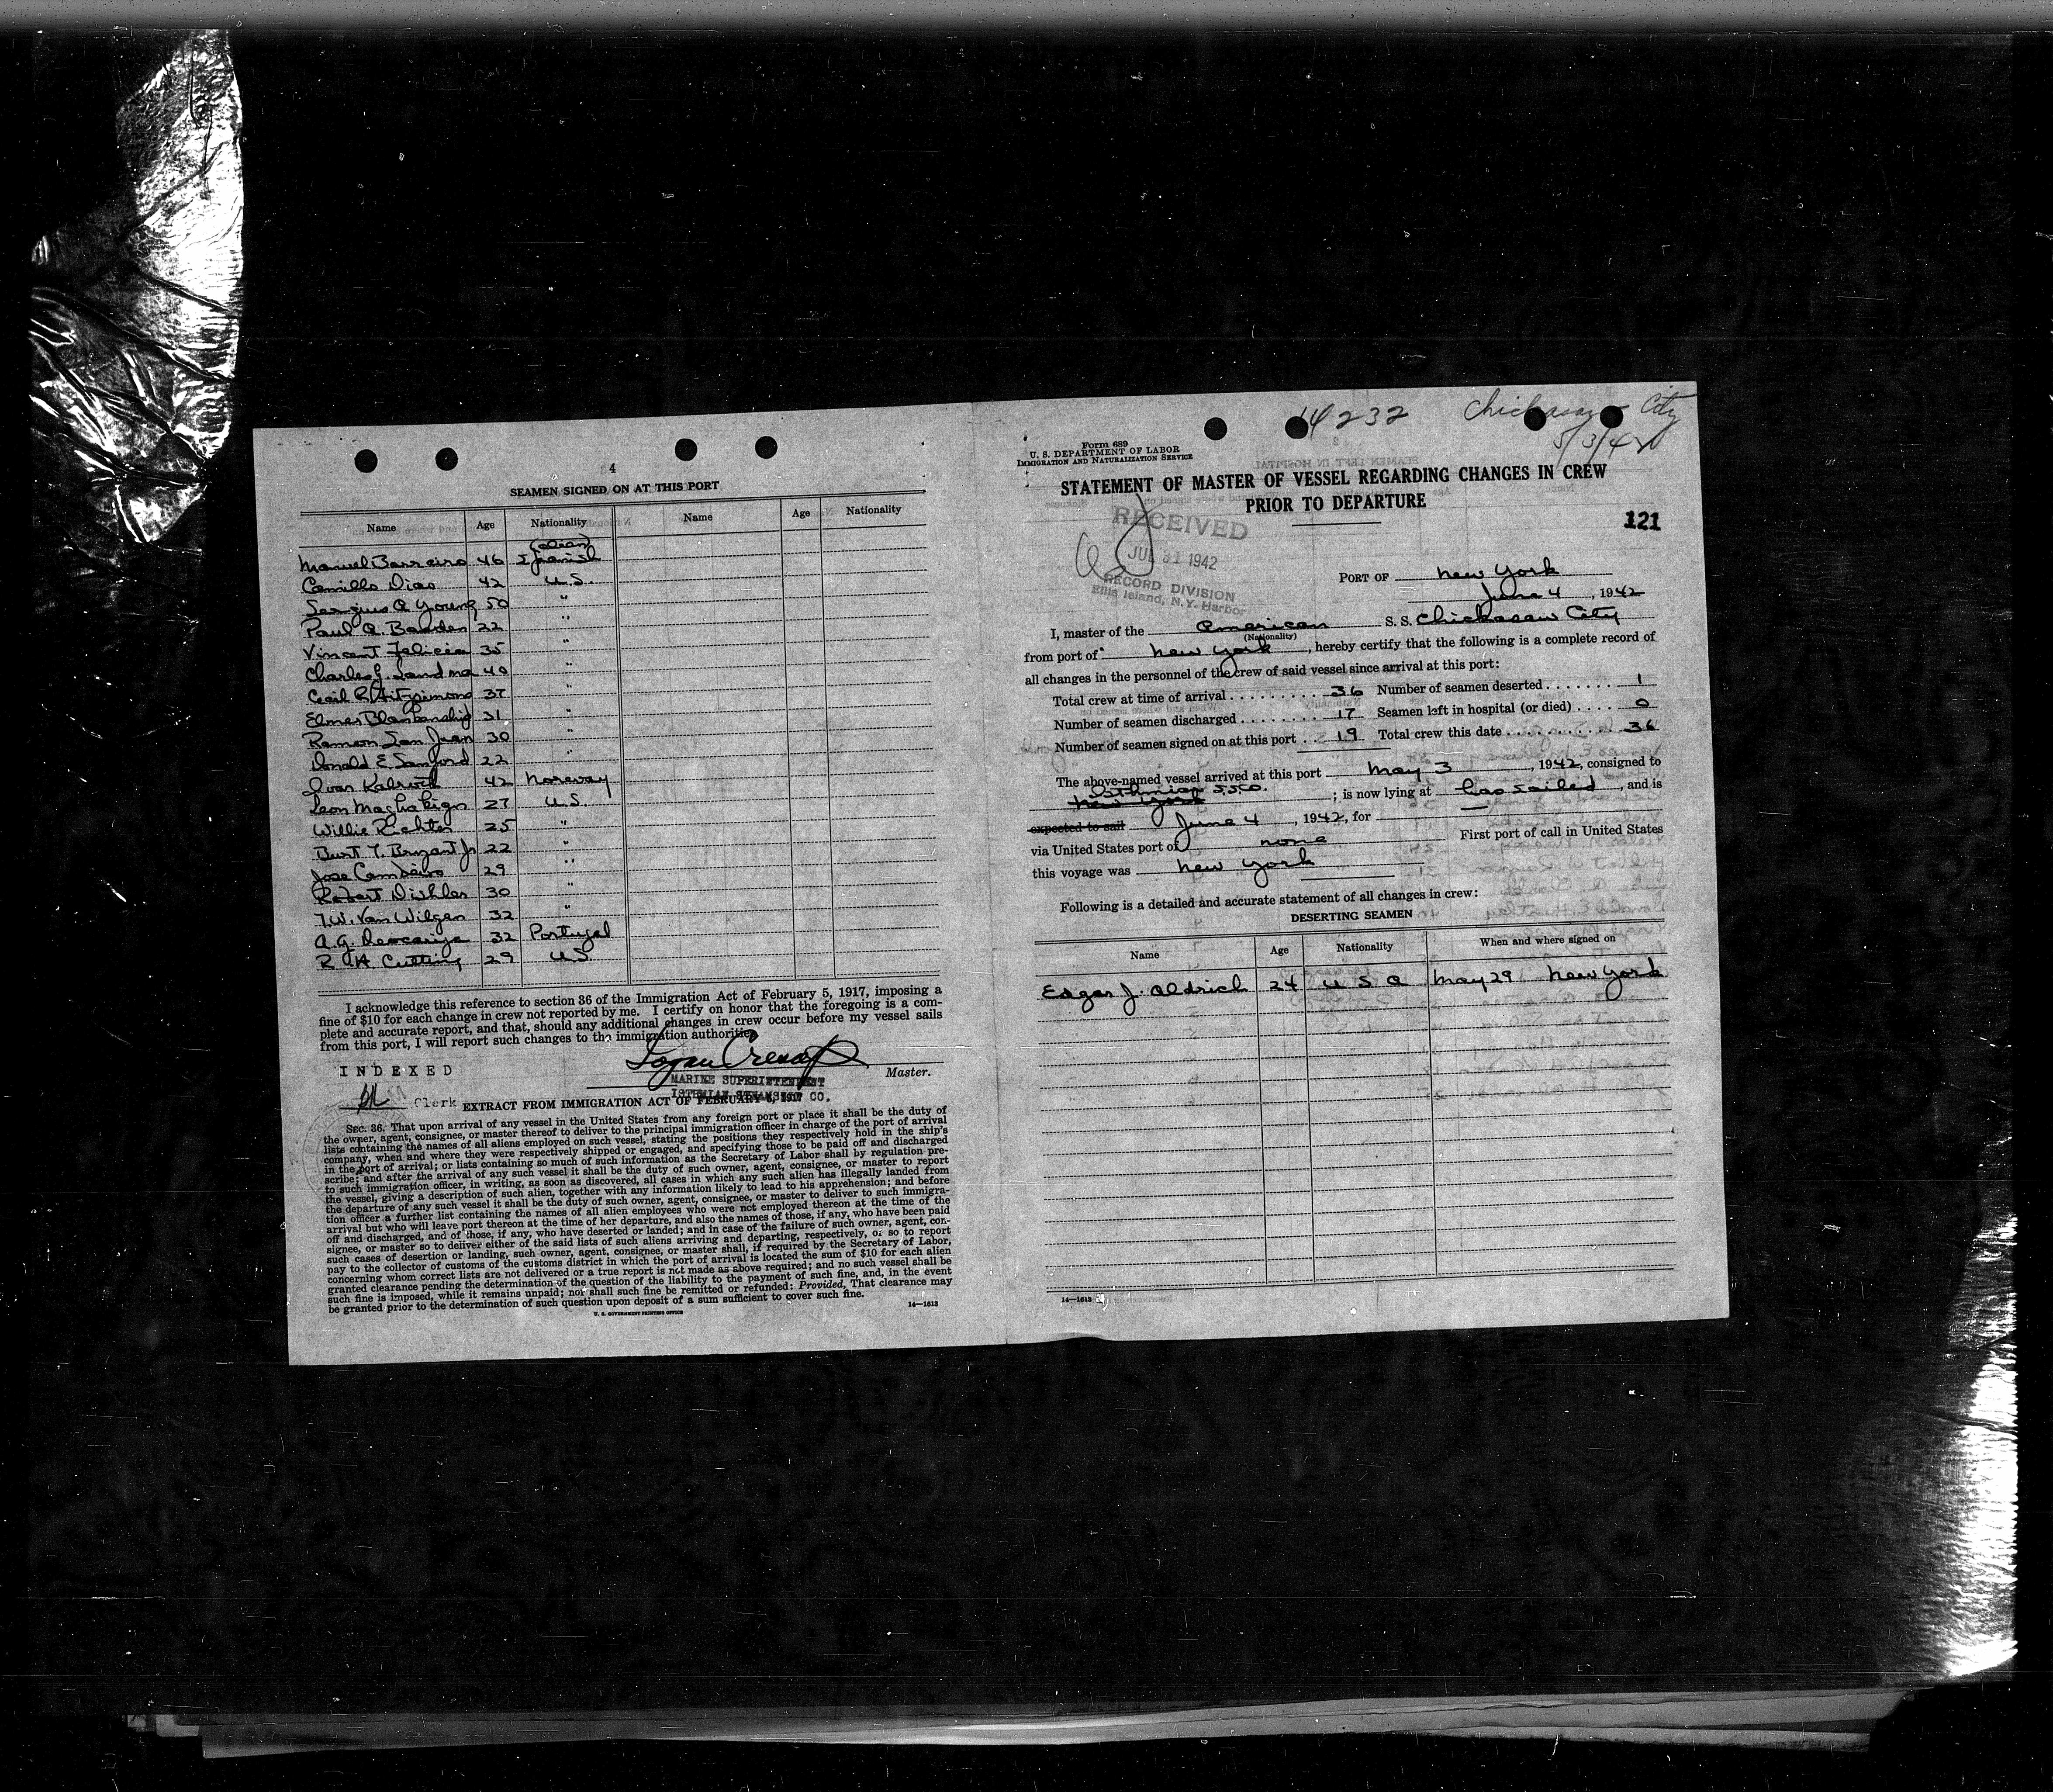 4
SEAMEN SIGNED ON AT THIS PORT
Name Age Nationality Name Age Nationality
(alien)
Manuel Barreiro 46 Spanish
Camillo Dias 42 U.S.
Sergius A Young 50 "
Paul A. Barden 22 "
Vincent Felicia 35 "
Charles G. Sandma 40 "
Cecil R. Fitzsimons 37 "
Elmer Blankenship 31 "
Ramon San Juan 30 "
Donald E Sanford 22 "
Ivar 42 Norway
Leon 27 U.S.
Willie Richter 25 "
Burt T. Bryant Jr 22 "
Jose 29 "
Robert Dishler 30 "
T.W. Van Wilgen 32 "
A.G. 32 Portugal
R H Cutting 29 U.S.
I acknowledge this reference to section 36 of the Immigration Act of February 5, 1917, imposing a
fine of $10 for each change in crew not reported by me. I certify on honor that the foregoing is a com-
plete and accurate report, and that, should any additional changes in crew occur before my vessel sails
from this port, I will report such changes to the immigration authorities.
INDEXED
Master.
MARINE SUPERINTENDENT
ISTHMIAN STEAMSHIP CO.
Clerk
EXTRACT FROM IMMIGRATION ACT OF FEBRUARY 5, 1917
SEC. 36. That upon arrival of any vessel in the United States from any foreign port or place it shall be the duty of
the owner, agent, consignee, or master thereof to deliver to the principal immigration officer in charge of the port of arrival
lists containing the names of all aliens employed on such vessel, stating the positions they respectively hold in the ship's
company, when and where they were respectively shipped or engaged, and specifying those to be paid off and discharged
in the port of arrival; or lists containing so much of such information as the Secretary of Labor shall by regulation pre-
scribe; and after the arrival of any such vessel it shall be the duty of such owner, agent, consignee, or master to report
to such immigration officer, in writing, as soon as discovered, all cases in which any such alien has illegally landed from
the vessel, giving a description of such alien, together with any information likely to lead to his apprehension; and before
the departure of any such vessel it shall be the duty of such owner, agent, consignee, or master to deliver to such immigra-
tion officer a further list containing the names of all alien employees who were not employed thereon at the time of the
arrival but who will leave port thereon at the time of her departure, and also the names of those, if any, who have been paid
off and discharged, and of those, if any, who have deserted or landed; and in case of the failure of such owner, agent, con-
signee, or master so to deliver either of the said lists of such aliens arriving and departing, respectively, or so to report
such cases of desertion or landing, such owner, agent, consignee, or master shall, if required by the Secretary of Labor,
pay to the collector of customs of the customs district in which the port of arrival is located the sum of $10 for each alien
concerning whom correct lists are not delivered or a true report is not made as above required; and no such vessel shall be
granted clearance pending the determination of the question of the liability to the payment of such fine, and, in the event
such fine is imposed, while it remains unpaid; nor shall such fine be remitted or refunded: Provided, That clearance may
be granted prior to the determination of such question upon deposit of a sum sufficient to cover such fine.
U. S. GOVERNMENT PRINTING OFFICE
14—1613
14232 Chickasaw City
5/3/42
Form 689
U. S. DEPARTMENT OF LABOR
IMMIGRATION AND NATURALIZATION SERVICE
STATEMENT OF MASTER OF VESSEL REGARDING CHANGES IN CREW
PRIOR TO DEPARTURE
121
RECEIVED
JUL 31 1942
RECORD DIVISION
Ellis Island, N.Y. Harbor
PORT OF New York
June 4, 1942
I, master of the American S. S. Chickasaw City
(Nationality)
from port of New York, hereby certify that the following is a complete record of
all changes in the personnel of the crew of said vessel since arrival at this port:
Total crew at time of arrival 36 Number of seamen deserted 1
Number of seamen discharged 17 Seamen left in hospital (or died) 0
Number of seamen signed on at this port 19 Total crew this date 36
The above-named vessel arrived at this port May 3, 1942, consigned to
Isthmian S.S.Co.
New York; is now lying at has sailed, and is
expected to sail June 4, 1942, for —
via United States port of none First port of call in United States
this voyage was New York
Following is a detailed and accurate statement of all changes in crew:
DESERTING SEAMEN
Name Age Nationality When and where signed on
Edgar J. Aldrich 24 U S A May 29 New York
14—1613